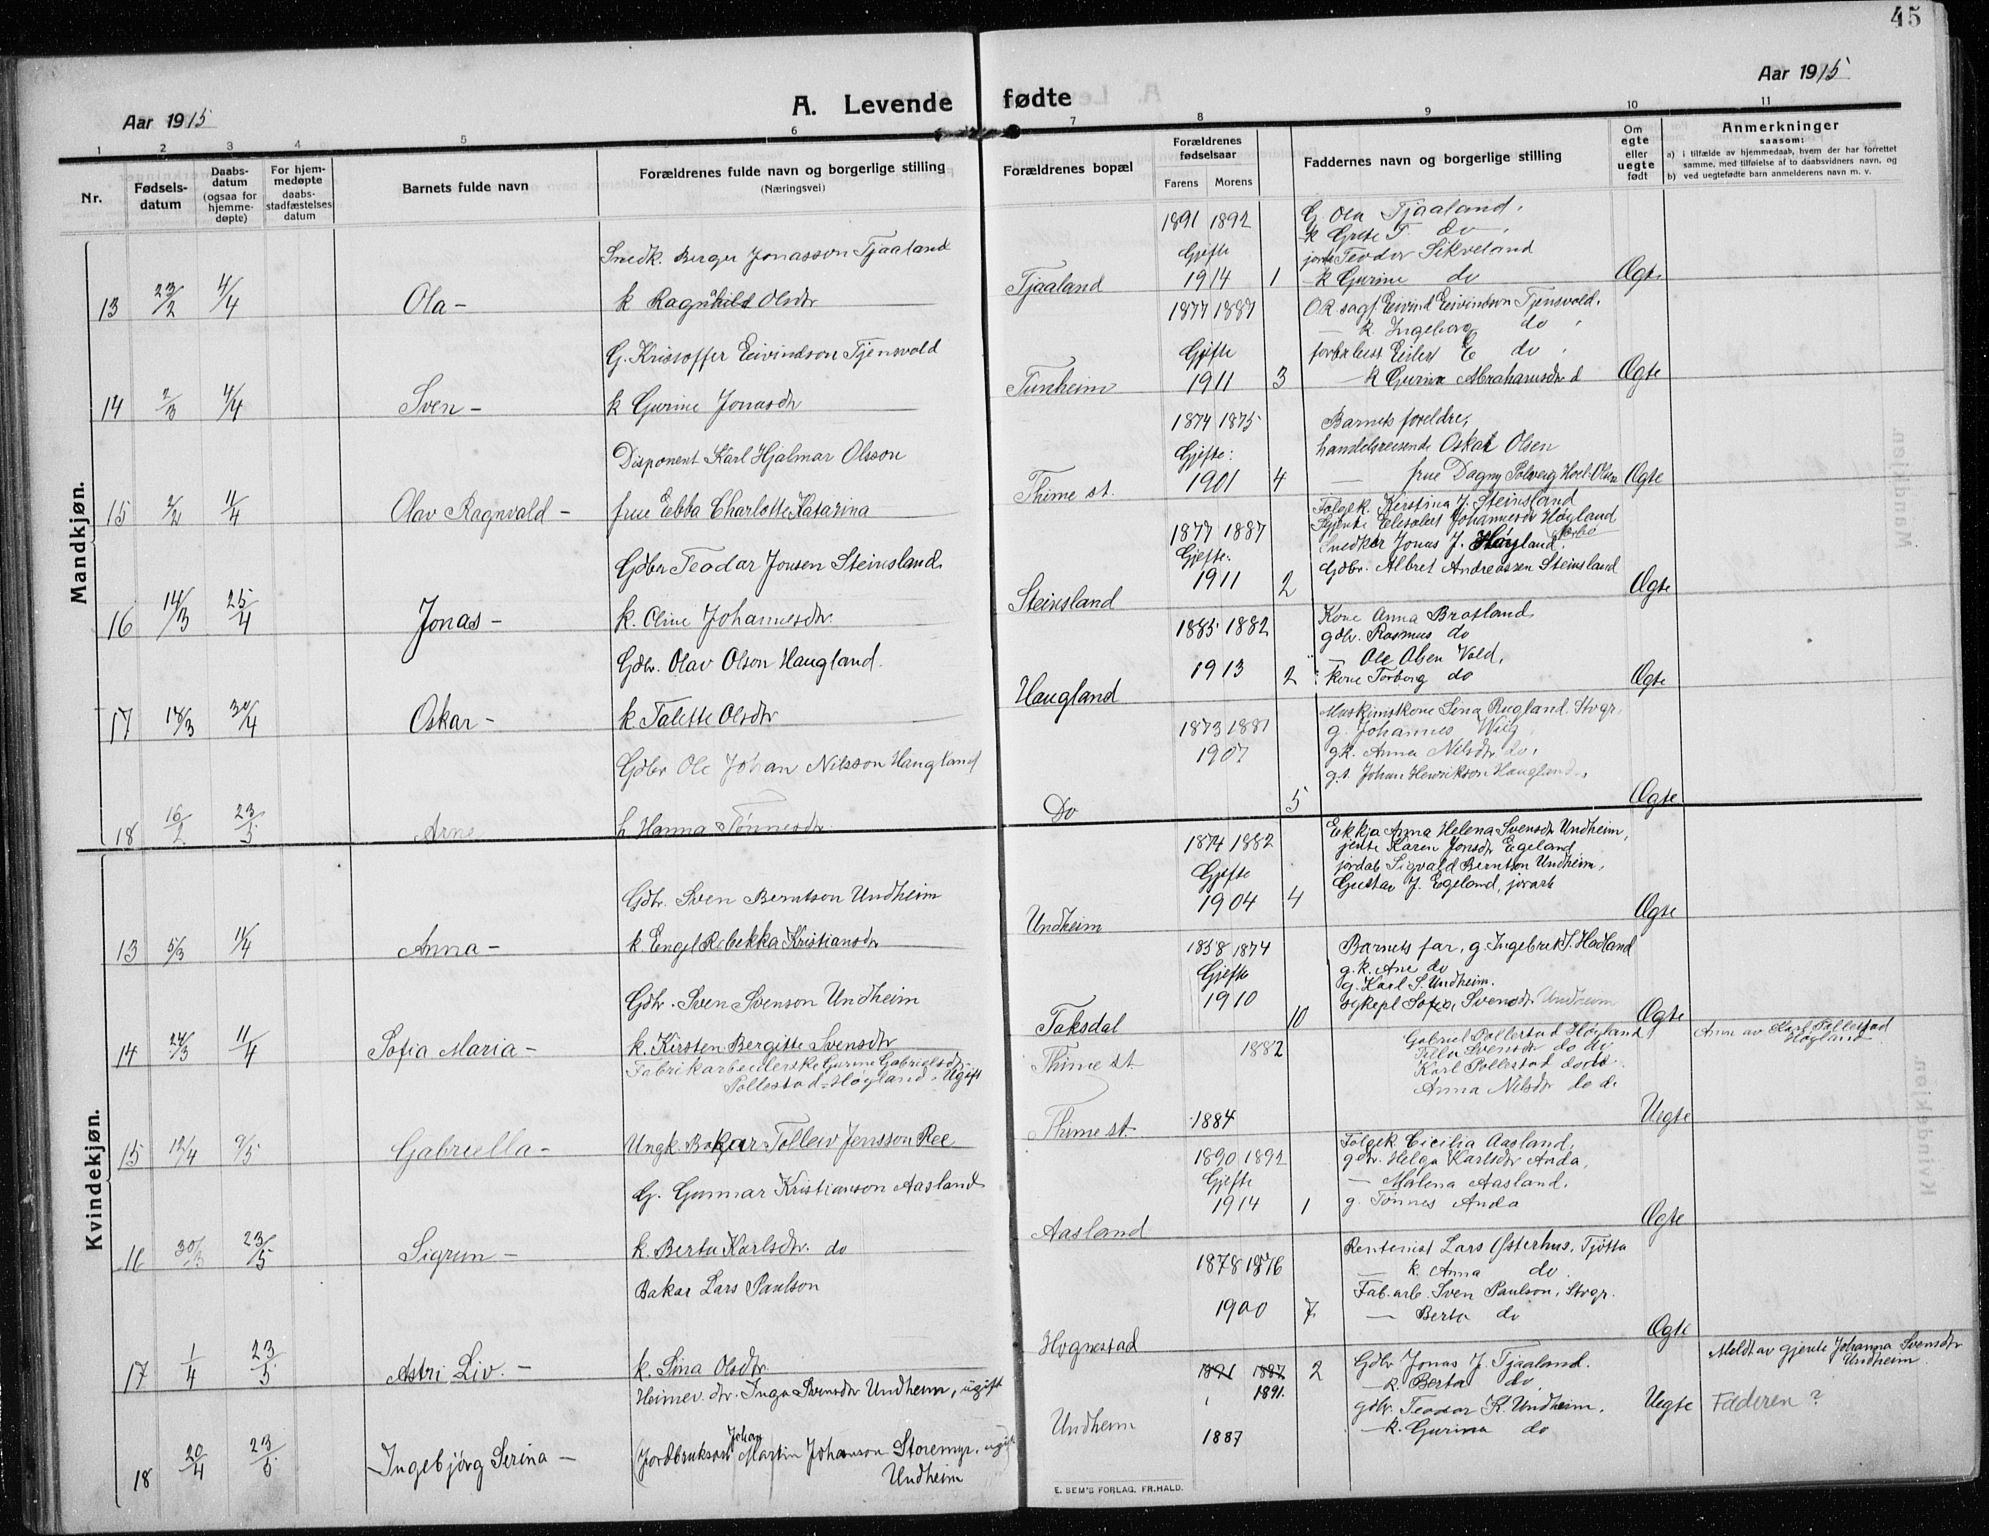 45
Aar 1915
A. Levende fødte
Aar 1915
1 2 3 4 5 6 7 8 9 10 11
Nr.
Fødsels-
datum
Daabs-
datum
(ogsaa for
hjemme-
døpte)
For hjem-
medøpte
daabs-
stadfæstelses
datum
Barnets fulde navn
Forældrenes fulde navn og borgerlige stilling
(Næringsvei)
Forældrenes bopæl
Forældrenes
fødselsaar
Farens Morens
Faddernes navn og borgerlige stilling
Om
egte
eller
uegte
født
Anmerkninger
saasom:
a) i tilfælde av hjemmedaab, hvem der har forrettet
samme, med tilføielse af to daabsvidners navn, og
b) ved uegtefødte barn anmelderens navn m. v.
Mandkjøn.
13 23/2 4/4 Ola -
Snedk. Berger Jonasson Tjaaland
k Ragnhild Olsdtr
Tjaaland
1891 1892
Gjefte
1914 1
G. Ola Tjaaland,
k Grete T do,
Teodor Sikveland
k Gurine do
Ægte
14 2/3 4/4 Sven -
G. Kristoffer Eivindson Tjensvold
k Gurine Jonasdtr
Tunheim
1877 1887
Gjefte
1911 3
O.R. sagf. Eivind Eivindson Tjensvold,
— k. Ingeborg do,
Eilert E do,
— k Gurine Abrahamsdtr d
Ægte
15 2/2 11/4 Olav Ragnvald -
Disponent Karl Hjalmar Olsson
frue Ebba Charlotte Katarina
Thime st.
1874 1875
Gjefte:
1901 4
Barnets foreldre,
handelsreisende Oskar Olsen
— frue Dagny Solveig Hoel-Olsen
Ægte
16 14/3 25/4 Jonas -
Gdbr Teodor Jonsen Steinsland
k. Oline Johannesdtr.
Steinsland
1877 1887
Gjefte:
1911 2
Folgek. Kerstina J. Steinsland
Gjente Elisabet Johannesdtr Høyland
Snedker Jonas J. Høyland
Gdbr. Albret Andreassen Steinsland
Ægte
17 18/3 30/4 Oskar -
Gdbr. Olav Olson Haugland.
k Talette Olsdtr
Haugland
1885 1882
1913 2
Kone Anna Bratland
gdbr. Rasmus do
— Ole Olsen Vold,
kone Torborg do
Ægte
18 16/2 23/5 Arne
Gdbr Ole Johan Nilsson Haugland
h Hanna Tønnesdtr
Do
1873 1881
1907
5
Maskinistkone Sina Rugland, Stvgr,
g. Johannes Wiig,
gk. Anna Nilsdtr do,
g.s. Johan Henrikson Haugland,
Ægte
Kvindekjøn.
13 5/3 11/4 Anna -
Gdbr. Sven Berntson Undheim
k Engel Rebekka Kristiansdtr
Undheim
1874 1882
Gjefte
1904 4
Ekkja Anna Helena Svensdtr Undheim,
jente Karen Jonsdtr Egeland
jordab Sigvald Berntson Undheim,
Gustav J. Egeland, jorarb
Ægte
14 24/3 11/4 Sofia Maria -
Gdbr. Sven Svenson Undheim
k. Kirsten Bergitte Svensdtr
Taksdal
1858 1874
Gjefte
1910 10
Barnets far, g. Ingebrikt S. Hadland
g.k. Ane do
g. Karl S. Undheim.
sykepl Sofie Svensdtr Undheim
Ægte
15 12/4 9/5 Gabriella -
Fabrikarbeiderske Gurine Gabrielsdtr
Pollestad-Høyland. Ugift
Ungk. Bakar Tollew Jensson Ree
Thime st
Thime st.
1882
1884
Gabriel Pollestad Høyland
Svensdtr do do
Karl Pollestad do do
Anna Nilsdtr do do
Uegte
Anm av Karl Pollestad
Høyland
16 30/3 23/5 Sigrun -
G. Gunnar Kristianson Aasland
k. Berta Karlsdtr. do
Aasland
1890 1892
Gjefte
1914 1
Folgek. Cicilia Aasland,
gdbr. Helga Karlsdtr Anda,
— Malena Aasland,
g. Tønnes Anda
Ægte
17 1/4 23/5 Astri Liv. -
Bakar Lars Paulson
k. Sina Olsdtr
Hognestad
1878 1876
1900 7
Rentenist Lars Østerhus, Tjøtta
— k. Anna do
Fab. arb. Sven Paulson, Stvgr.
— Berta do
Ægte
18 20/4 23/5 Ingebjörg Serina -
Heimev. dtr. Inga Svensdtr Undheim, ugift
(Jordbrukson Johan Martin Johanson Storemyr, ugift
Undheim
Undheim
1891 1887 2
1891.
1887
Gdbr Jonas J. Tjaaland.
— k. Berta do
gdbr. Teodor K. Undheim.
— k. Gurina do
Uegte
Meldt av gjente Johanna Svensdtr
Undheim
Faderen?
E. SEM'S FORLAG, FR.HALD.